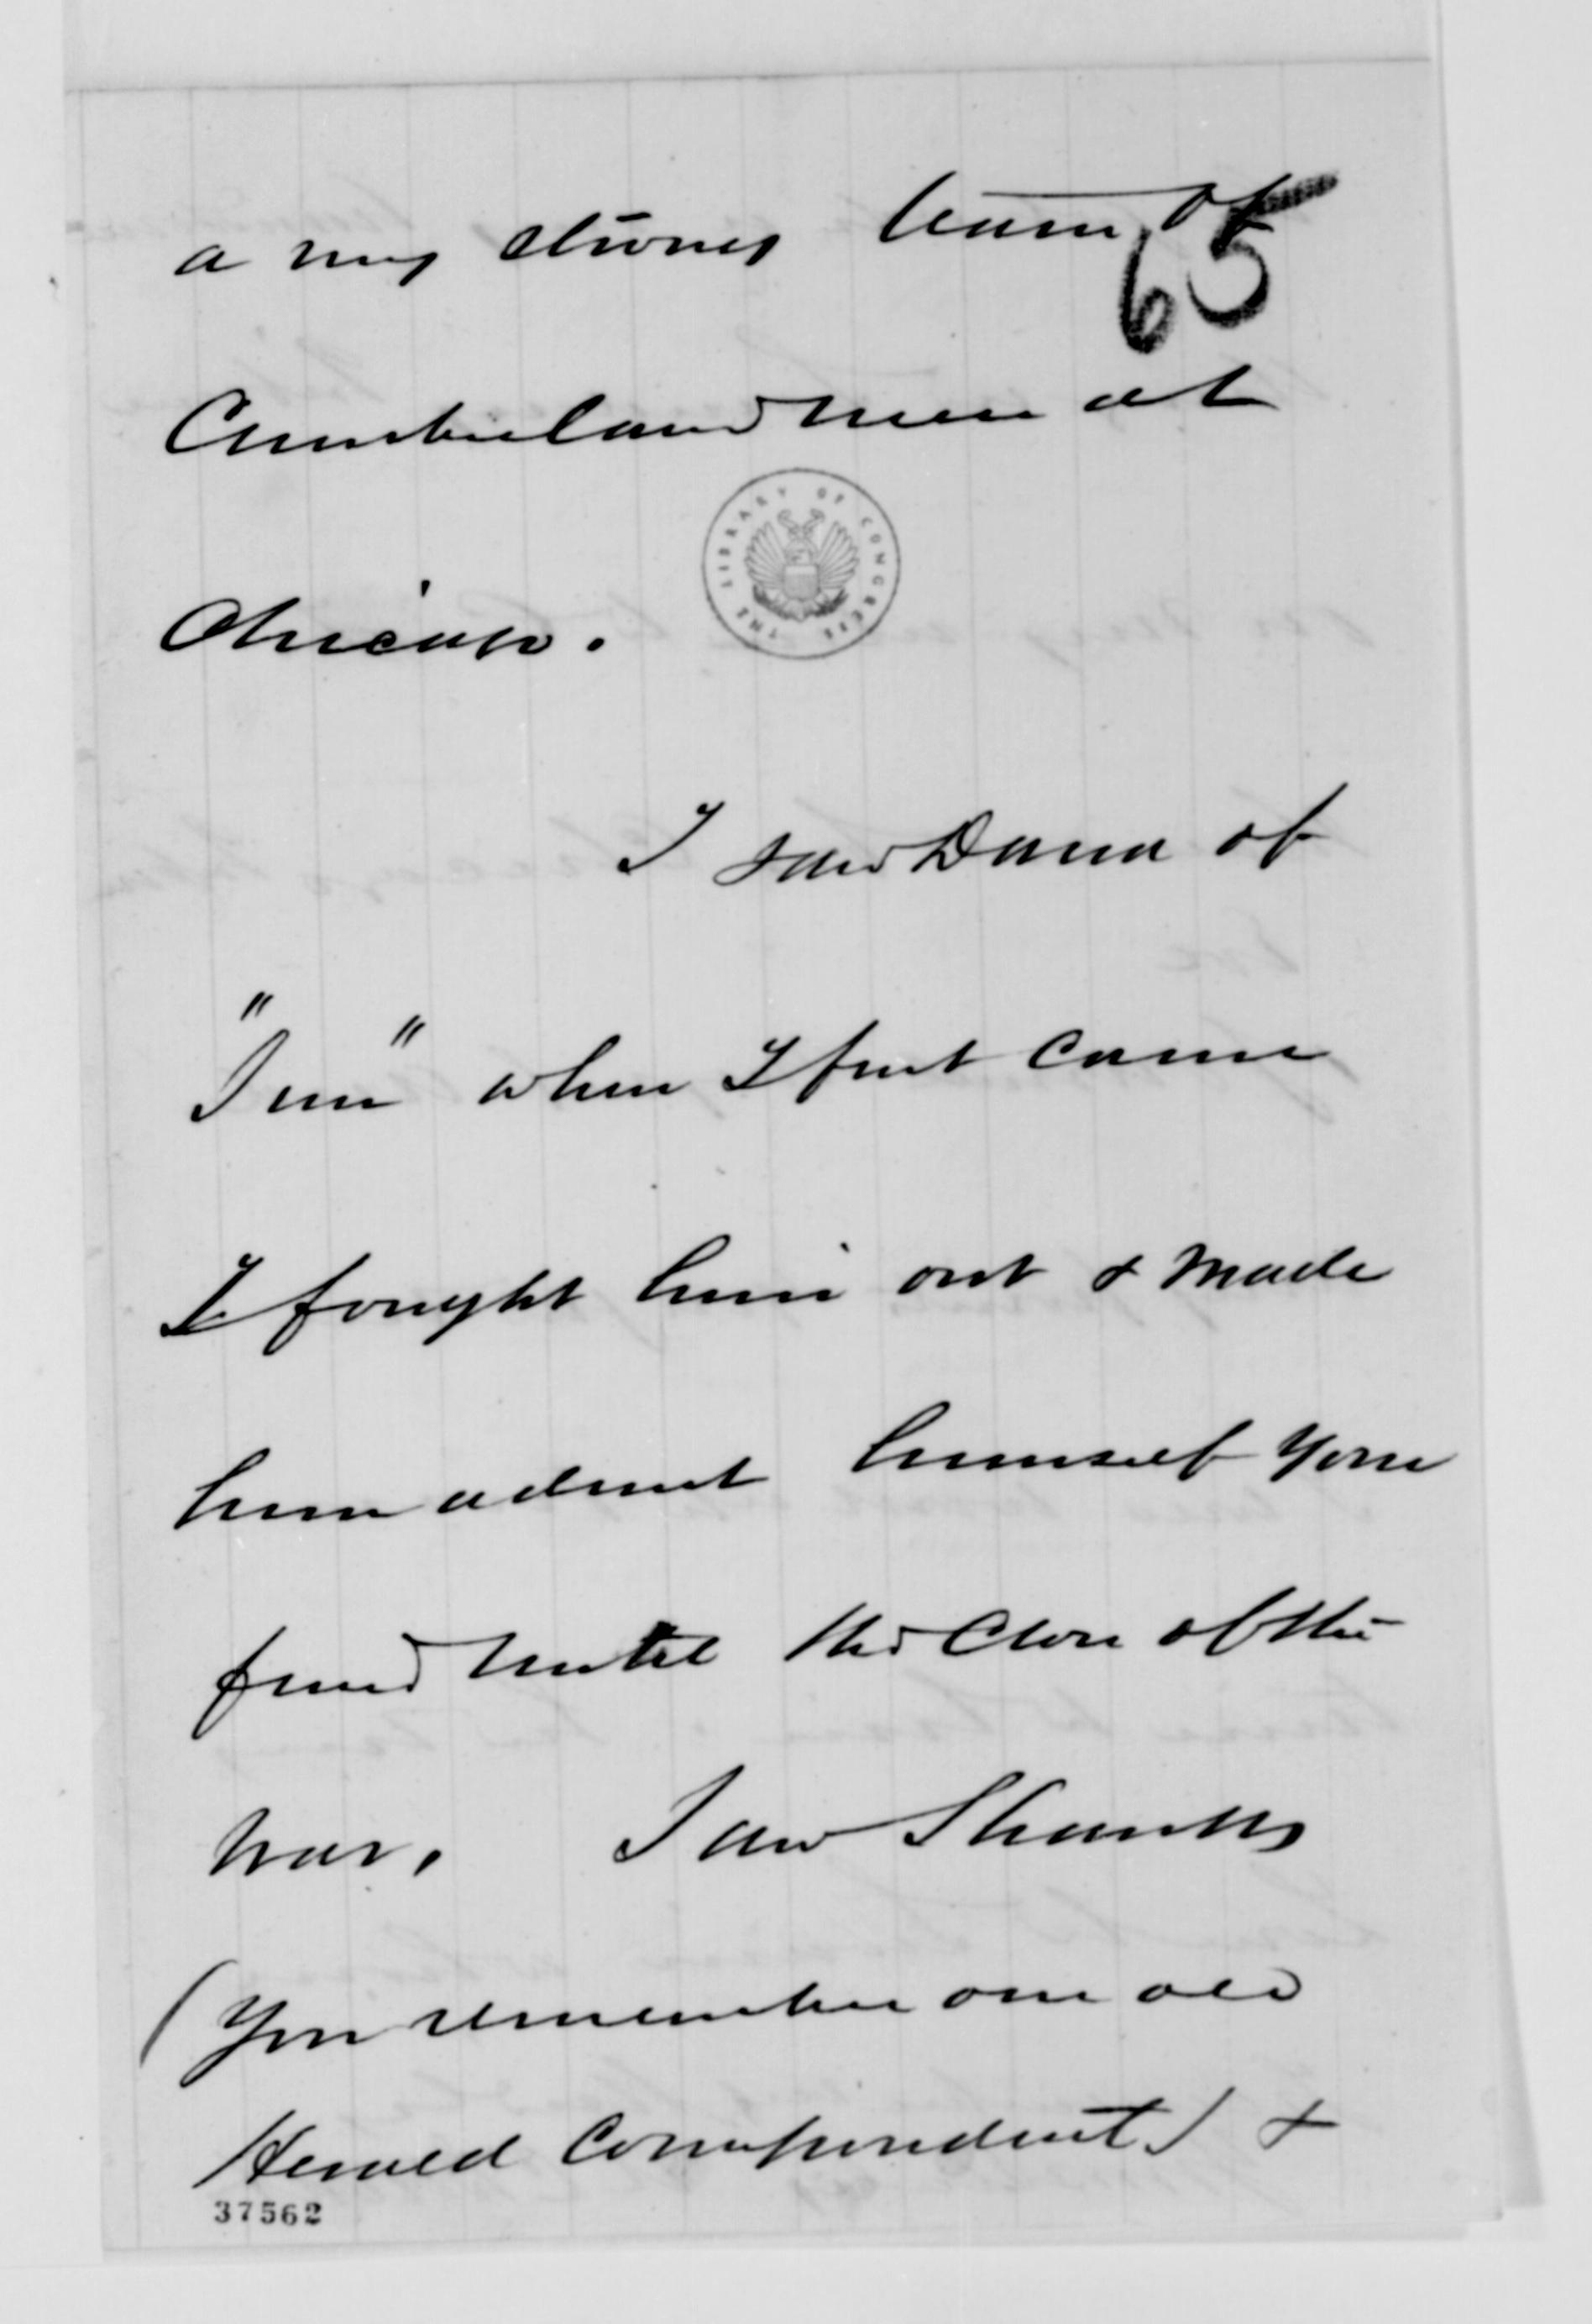 a very strong team of
65
Cumberland men at
Chicago.
THE LIBRARY OF CONGRESS
I saw Dana of
"Sun" when I first came
I fought him out & made
him admit himself your
friend until the close of the
war. Saw Shanks
(you remember our old
Herald Correspondent) &
37562